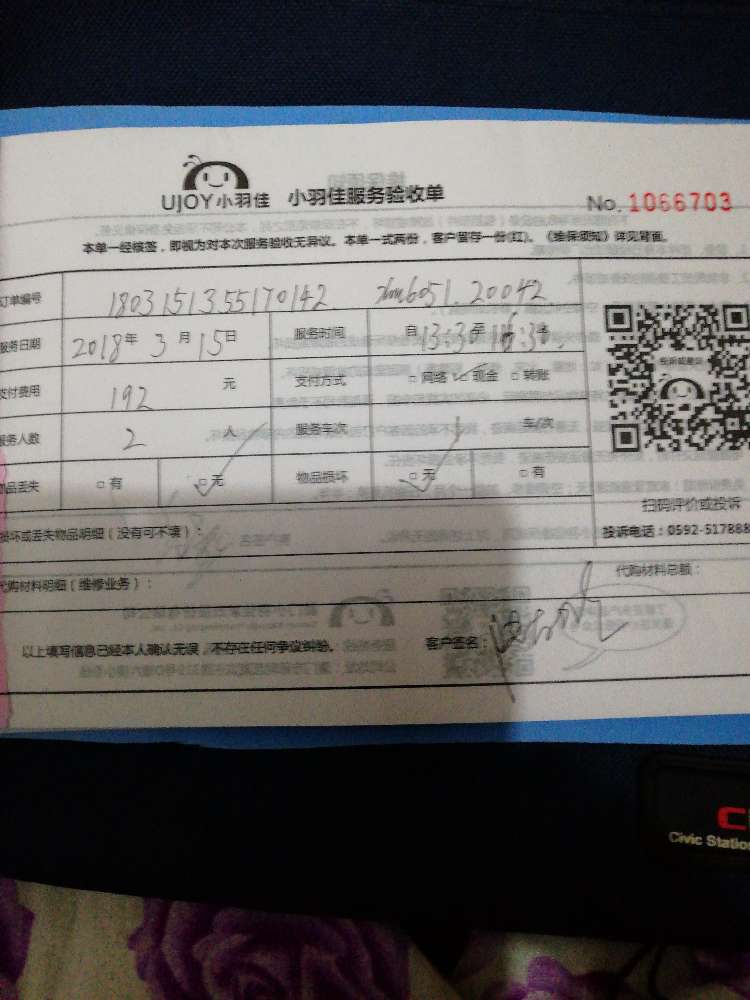 UJOY小羽佳 小羽佳服务验收单
No. 1066703
本单一经核签，即视为对本次服务验收无异议。本单一式两份，客户留存一份(红)。《维保须知》详见背面。
订单编号 1803151355170142 6051.20042
服务日期 2018年3月15日 服务时间 自13:30至16:30
支付费用 192 元 支付方式 □网络 □现金 □转账
服务人数 2 人 服务车次 车/次
物品丢失 □有 □无 物品损坏 □无 □有
扫码评价或投诉
损坏或丢失物品明细（没有可不填）：
投诉电话：0592-517888
代购材料明细（维修业务）： 代购材料总额：
以上填写信息已经本人确认无误，不存在任何争议纠纷。 客户签名：
Civic Statio